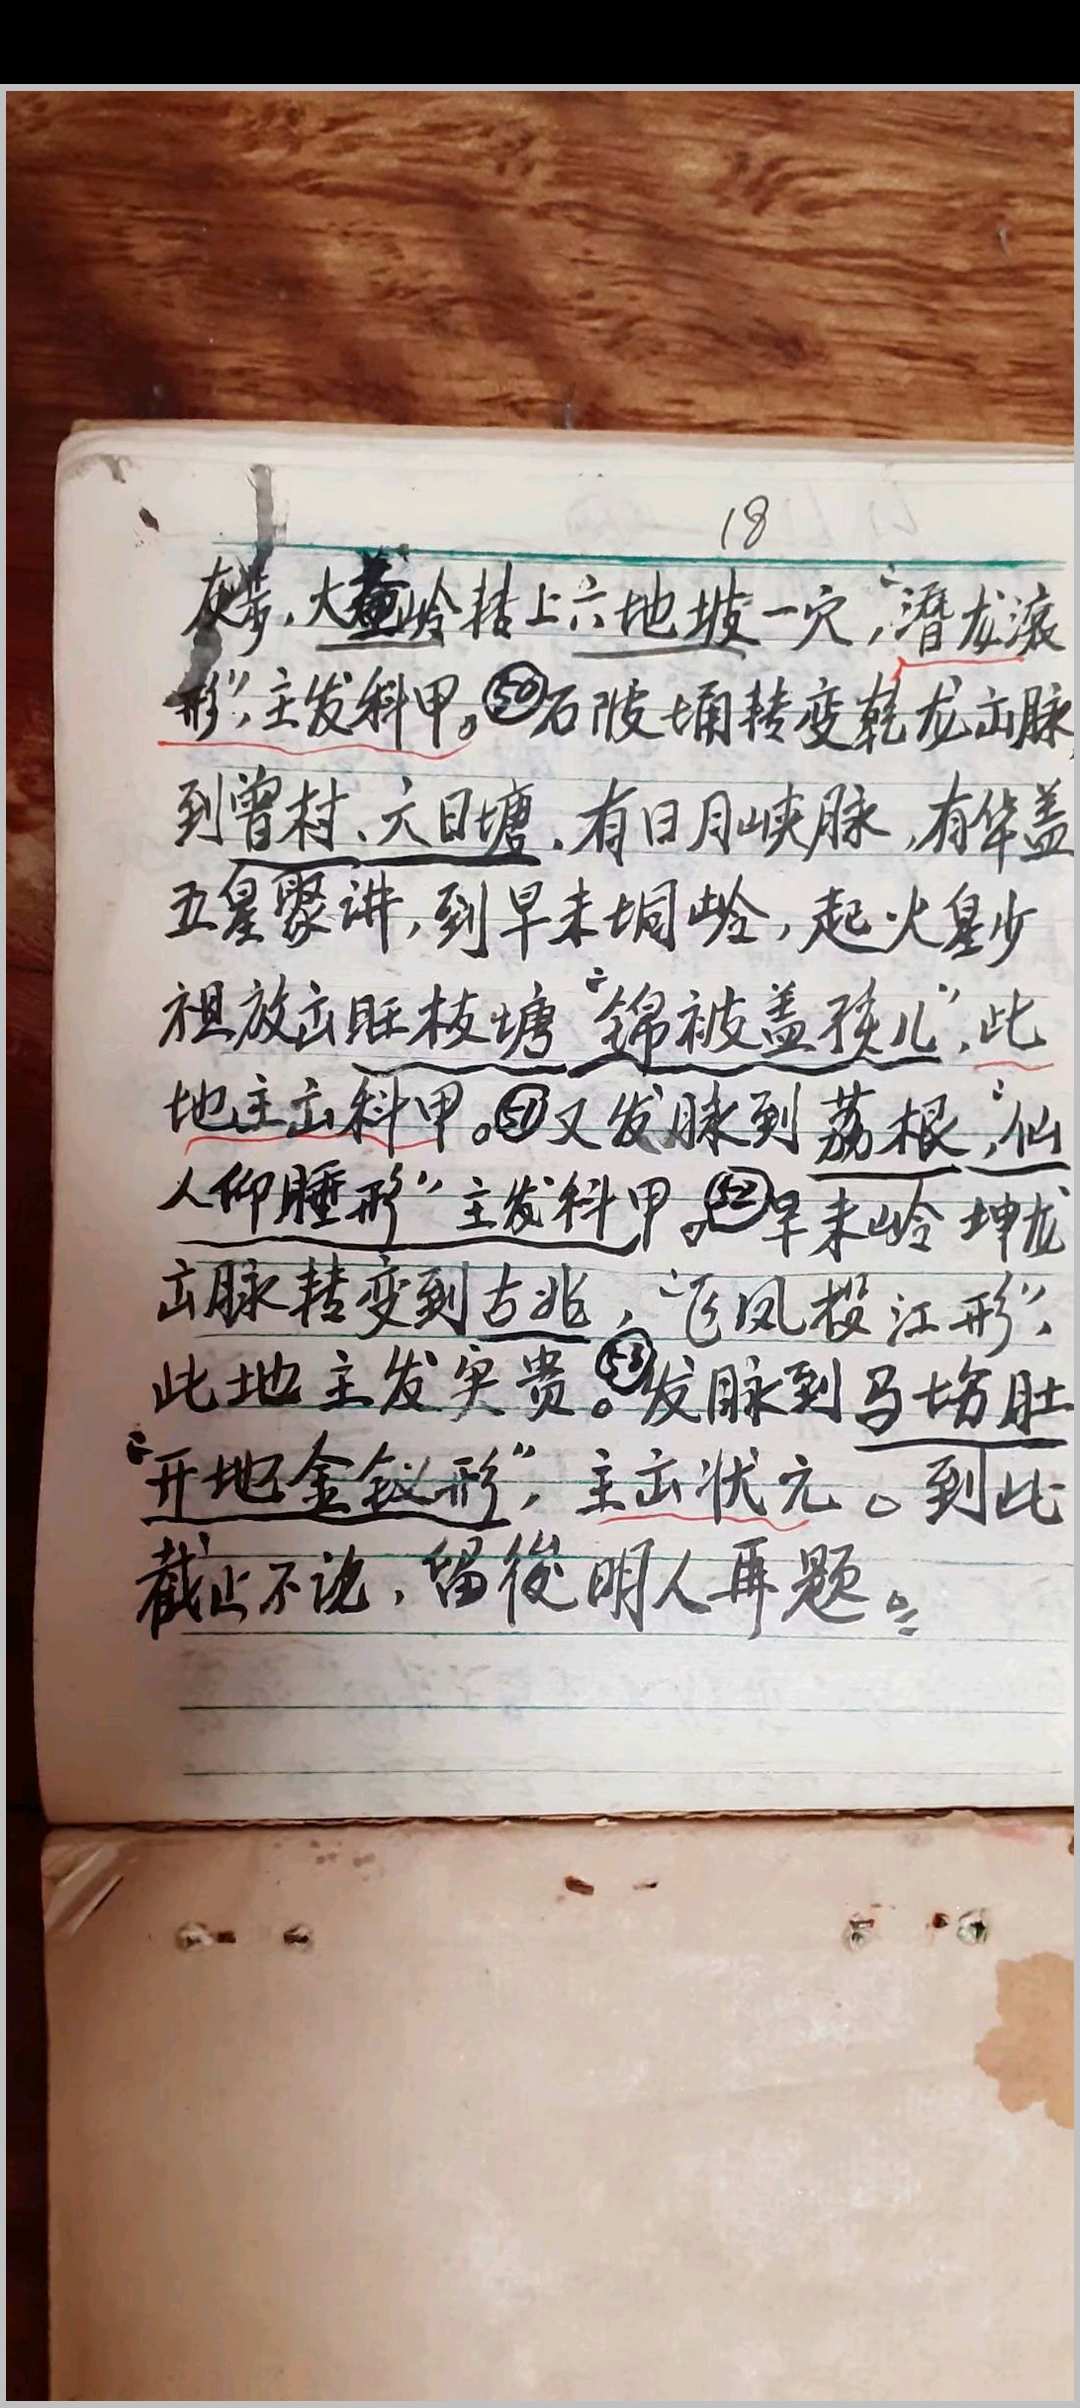 18
灰步，大岭转上六地坡一穴，“潜龙滚
形”，主发科甲。㊿石陂埇转变乾龙出脉，
到曾村、六日塘，有日月峡脉，有华盖
五星聚讲，到早禾垌岭，起火星少
祖放出旺枝塘“锦被盖孩儿”，此
地主出科甲。51又发脉到荔根，“仙
人仰睡形”主发科甲。52早禾岭坤龙
出脉转变到古兆，“飞凤投江形”，
此地主发实贵。53发脉到马坊肚
“开地金钗形”，主出状元。到此
截止不说，留後明人再题。